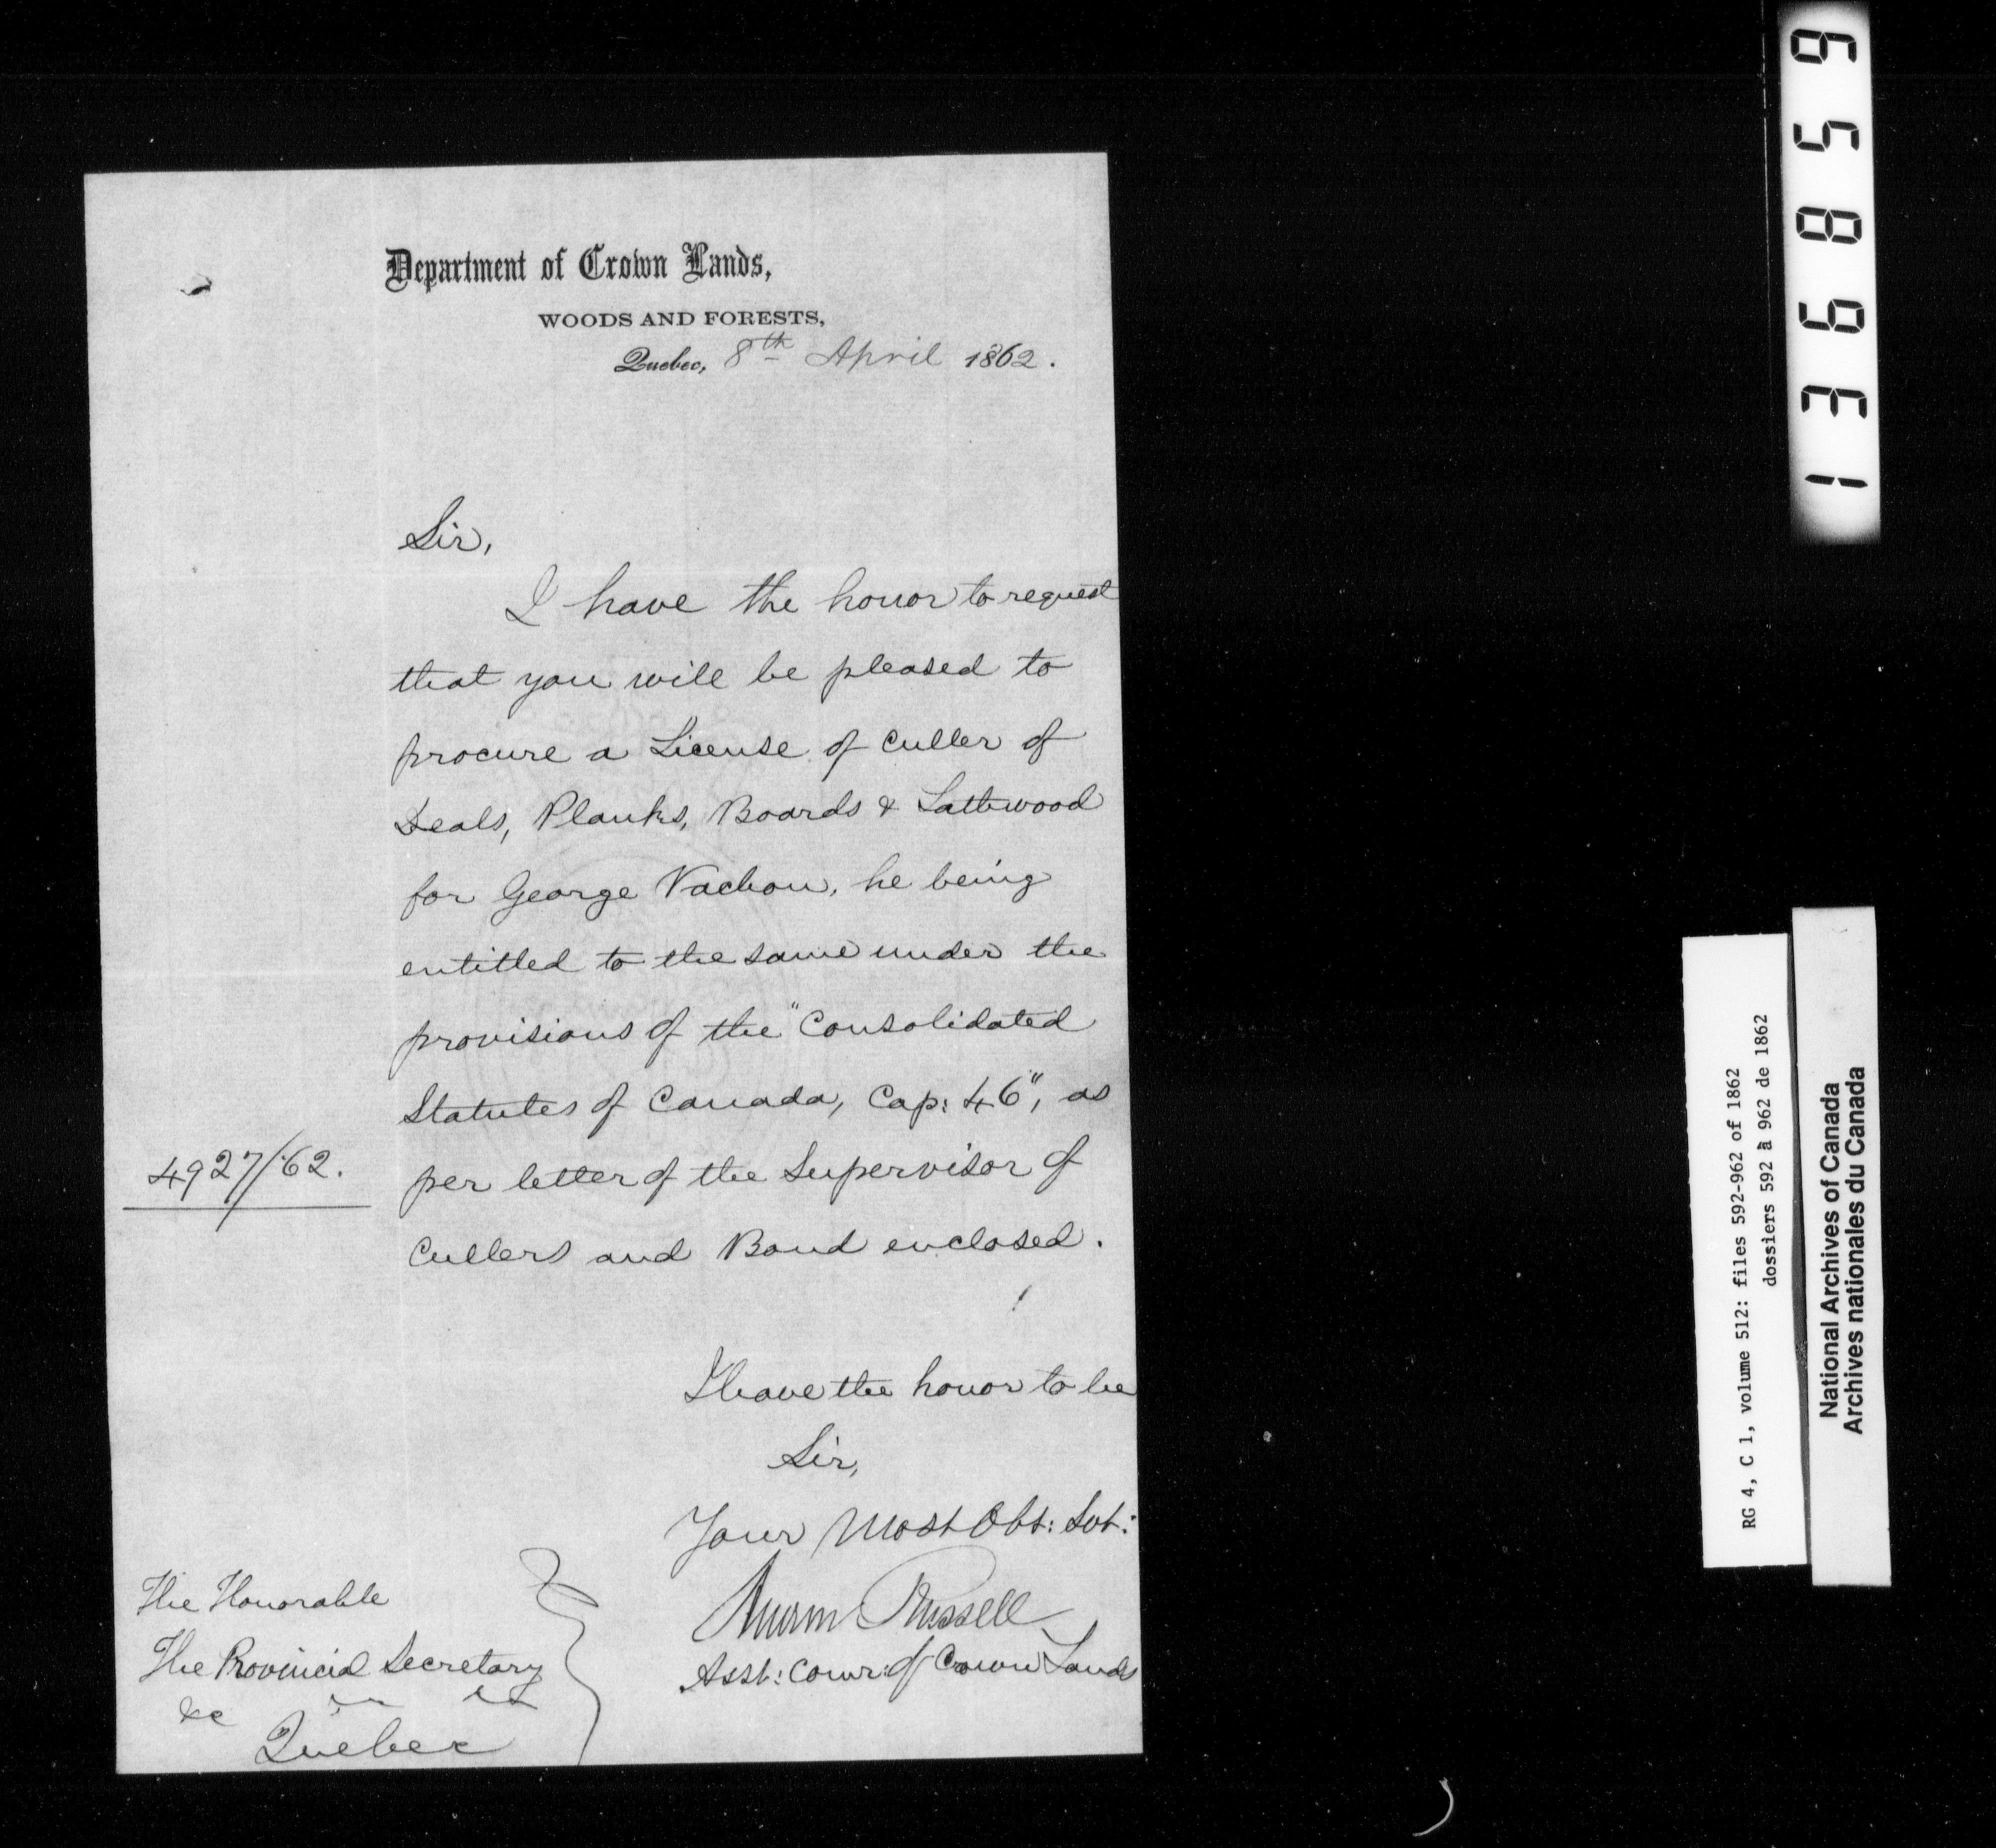 Department of Crown Lands,
WOODS AND FORESTS,
Quebec, 8th April 1862.
Sir,
I have the honor to request
that you will be pleased to
procure a License of Culler of
Deals, Planks, Boards & Lathwood
for George Vachon, he being
entitled to the same under the
provisions of the "Consolidated
Statutes of Canada, Cap: 46", as
4927/62.
per letter of the Supervisor of
Cullers and Bond enclosed.
I have the honor to be
Sir,
Your Most Obt: Svt:
Russell
Asst: Comr: of Crown Lands
The Honorable
The Provincial Secretary
&c &c &c
Quebec
136859
RG 4, C 1, volume 512: files 592-962 of 1862
dossiers 592 à 962 de 1862
National Archives of Canada
Archives nationales du Canada